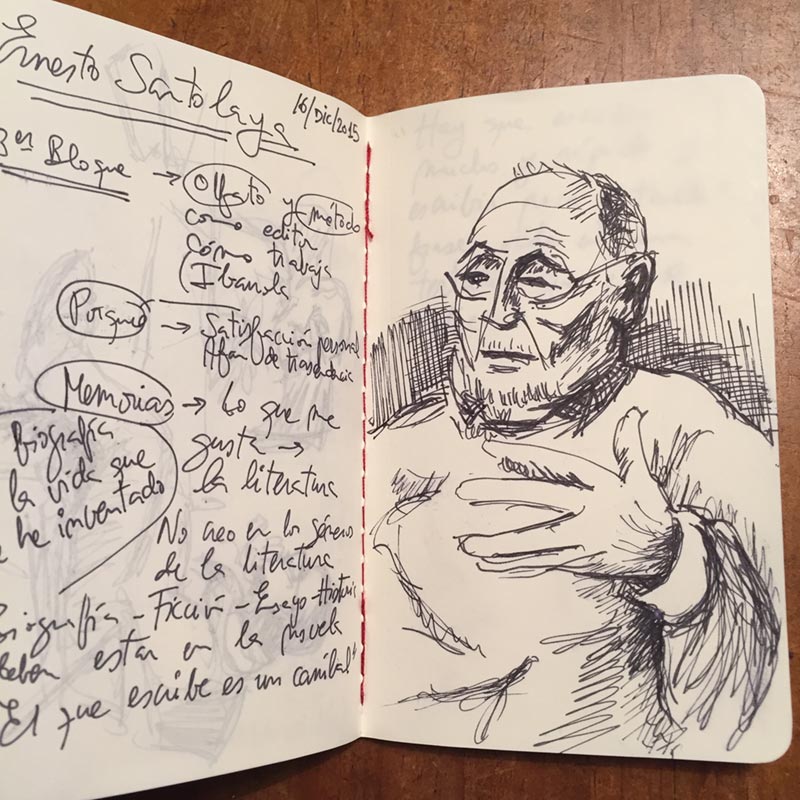 Ernesto Santolaya
16/Dic/2015
3er Bloque → Olfato y método
como editor
cómo trabaja
(Ibarrola
Porqué → Satisfacción personal
Afan de trascendencia
Memorias → Lo que me
gusta →
la literatura
Biografía
la vida que
he inventado
No creo en los géneros
de la literatura
Biografía - Ficción - Ensayo - Historia
Deben estar en la novela
"El que escribe es un canibal"
"Hay que
mucho